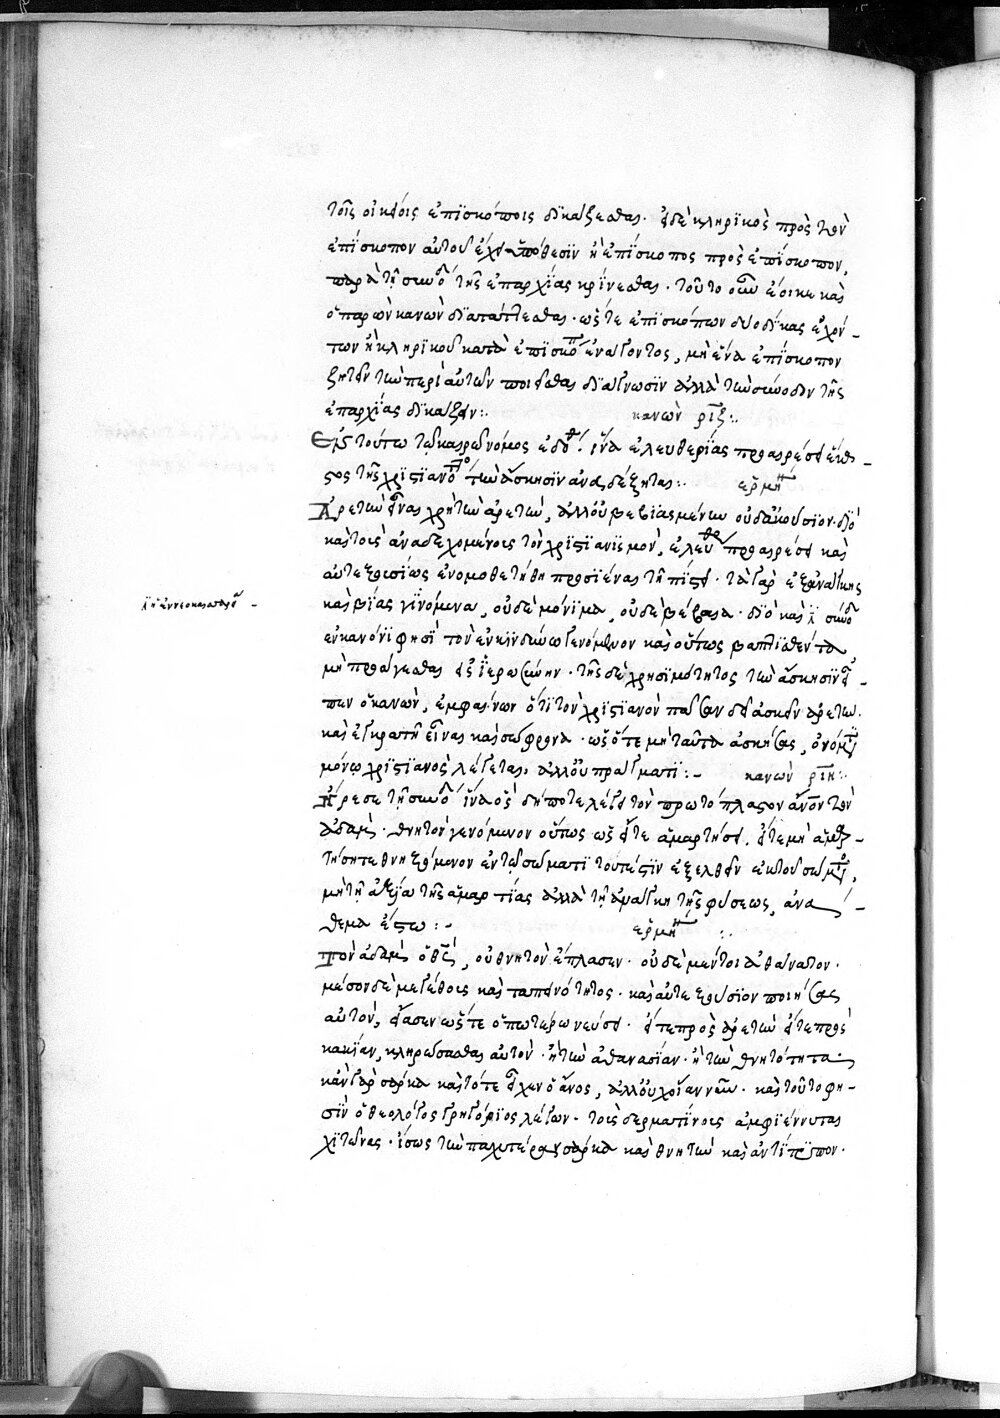 τοῖς οἰκείοις ἐπισκόποις δικάζεσθαι. εἰ δὲ κληρικὸς πρὸς τὸν
ἐπίσκοπον αὐτοῦ ἔχει ὑπόθεσιν ἢ ἐπίσκοπος πρὸς ἐπίσκοπον,
παρὰ τῇ συνόδ τῆς ἐπαρχίας κρίνεσθαι. τοῦτο οὖν ἔοικε καὶ
ὁ παρὼν κανὼν διατάττεσθαι. ὥστε ἐπισκόπων δύο δίκας ἐχόν-
των ἢ κληρικοῦ κατὰ ἐπισκόπ ἐνάγοντος, μὴ ἕνα ἐπίσκοπον
ζητεῖν τὴν περὶ αὐτῶν ποιεῖσθαι διάγνωσιν ἀλλὰ τὴν σύνοδον τῆς
ἐπαρχίας δικάζειν: κανὼν ριζ:
Ἐν τούτω τῷ καιρῷ νόμος ἐδόθ. ἵνα ἐλευθερίας προαιρέσει ἕκα-
στος τῆς χριστιανότ τὴν ἄσκησιν ἀναδέξηται: ἑρμη
Ἀρετὴν εἶναι χρὴ τὴν ἀρετὴν, ἀλλ' οὐ βεβιασμένην οὐδ' ἀκούσιον. διὸ
καὶ τοῖς ἀναδεχομένοις τὸν χριστιανισμὸν, ἐλευθέ προαιρέσει καὶ
αὐτεξουσίως ἐνομοθετήθη προσιέναι τῇ πίστει. τὰ γὰρ ἐξ ἀνάγκης
καὶ βίας γινόμενα, οὐδὲ μόνιμα, οὐδὲ βέβαια. διὸ καὶ ἡ σύνοδ
ἡ ἐν νεοκαισαρεί -
ἐκανόνισε μὴ τὸν ἐν κινδύνω γενόμενον καὶ οὕτως βαπτισθέντα
μὴ προάγεσθαι εἰς ἱερωσύνην. τῆς δὲ χρησιμότητος τὴν ἄσκησιν εἶ-
πεν ὁ κανὼν, ἐμφαίνων ὅτι τὸν χριστιανὸν πᾶσαν δεῖ ἀσκεῖν ἀρετὴν.
καὶ ἐγκρατῆ εἶναι καὶ σώφρονα. ὡς ὅγε μὴ ταῦτα ἀσκήσας, ὀνόμτι
μόνῳ χριστιανὸς λέγεται, ἀλλ' οὐ πράγματι:- κανὼν ριη:
Ἤρεσε τῇ συνόδ ἵνα ὃς δήποτε λέγει τὸν πρωτόπλαστον ἄνον τὸν
ἀδὰμ. θνητὸν γενόμενον οὕτως ὡς εἴτε ἁμαρτήσει. εἴτε μὴ ἁμαρ-
τήσει τεθνηξόμενον ἐν τῷ σώματι τουτέστιν ἐξελθεῖν ἐκ τοῦ σώμτος,
μὴ τῇ ἀξίᾳ τῆς ἁμαρτίας ἀλλὰ τῇ ἀνάγκη τῆς φύσεως, ἀνά-
θεμα ἔστω:- ἑρμη :
Τὸν ἀδὰμ ὁ θς, οὐ θνητὸν ἔπλασεν. οὐδὲ μέντοι ἀθάνατον.
μέσον δὲ μεγέθους καὶ ταπεινότητος. καὶ αὐτεξούσιον ποιήσας
αὐτὸν, εἴασεν ὥστε ὁποτέρω νεύσει. εἴτε πρὸς ἀρετὴν εἴτε πρὸς
κακίαν, κληρώσασθαι αὐτὸν. ἢ τὴν ἀθανασίαν. ἢ τὴν θνητότητα
κἂν γὰρ σάρκα καὶ τότε εἶχεν ὁ ἄνος, ἀλλ' οὐχ οἵαν νῦν. καὶ τοῦτο φη-
σὶν ὁ θεολόγος γρηγόριος λέγων. τοὺς δερματίνους ἀμφιέννυται
χιτῶνας. ἴσως τὴν παχυτέραν σάρκα καὶ θνητὴν καὶ ἀντίτυπον.